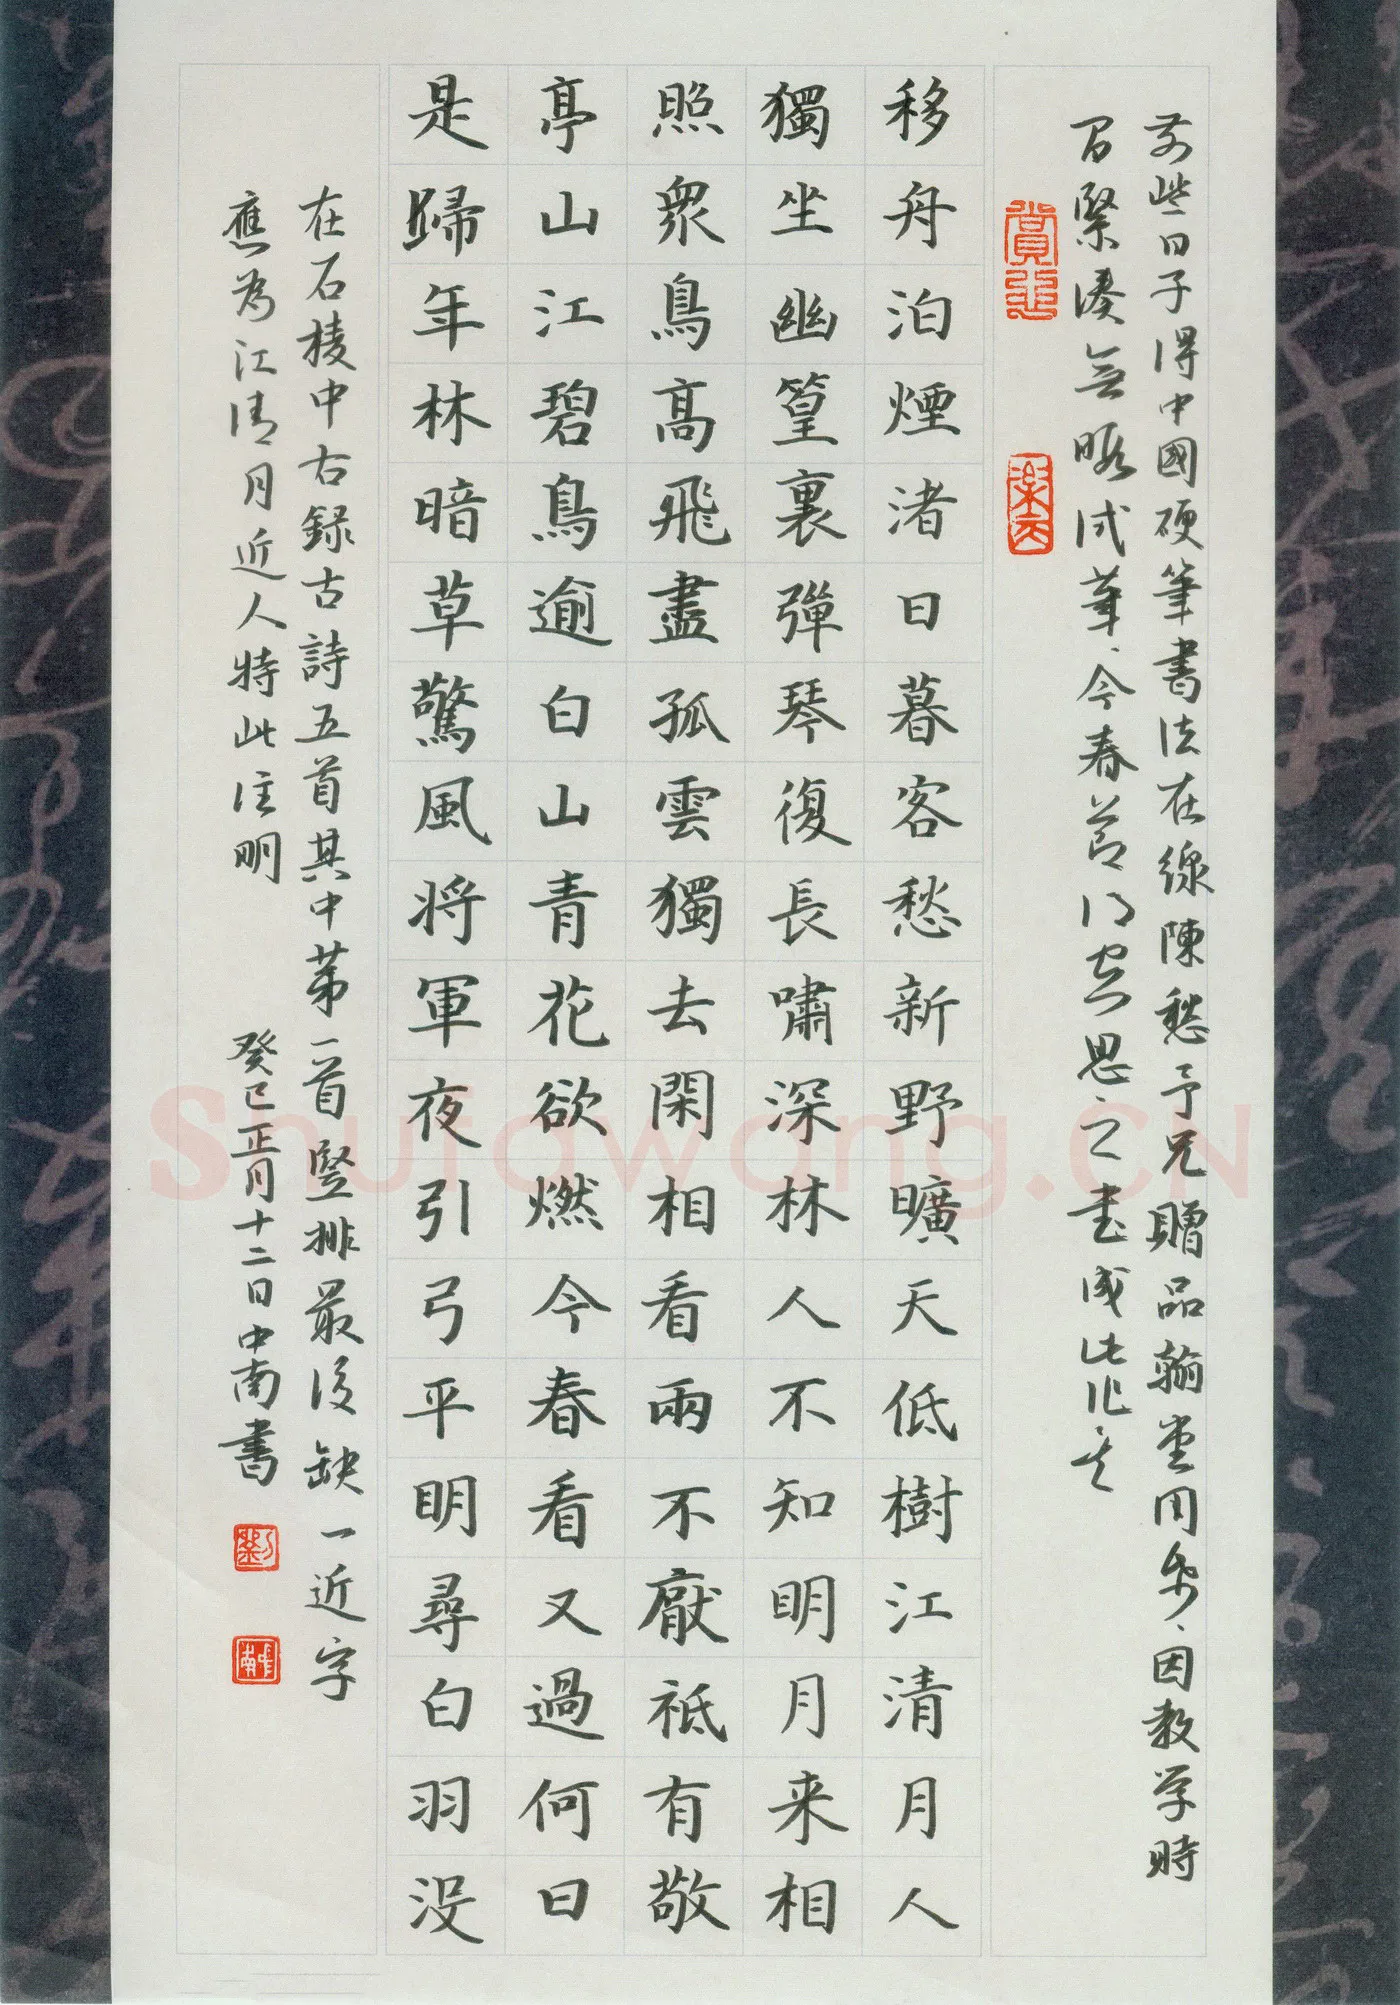 前些日子得中國硬筆書法在線陳愁予兄贈品翰墨同乐、因教学時
間緊湊無暇成筆、今春節得空思之書成此作矣
賞正
移舟泊煙渚日暮客愁新野曠天低樹江清月人
獨坐幽篁裏彈琴復長嘯深林人不知明月来相
照衆鳥高飛盡孤雲獨去閑相看兩不厭祗有敬
亭山江碧鳥逾白山青花欲燃今春看又過何日
是歸年林暗草驚風将軍夜引弓平明尋白羽沒
在石棱中右録古詩五首其中第一首豎排最後缺一近字
應為江清月近人特此注明 癸巳正月十二日中南書
Shufawang.CN